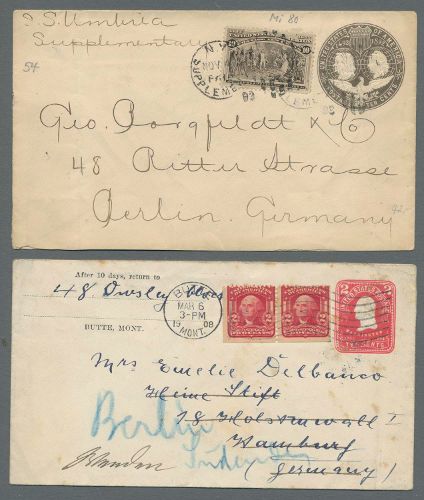 S.S. Umbria
Supplementary
54
Mi 80
N.Y.
NOV
SUPPLEME
93
10
10
Geo. Borgfeldt & Co
48 Ritter Strasse
Berlin, Germany
After 10 days, return to
48 Owsley
BUTTE, MONT.
BUTTE
MAR 6
3-PM
1908
MONT.
2
2
2
2
TWO CENTS
Mrs Emelie Delbanco
Heine Stift
18 Holstenwall I
Hamburg
(Germany)
Berlin